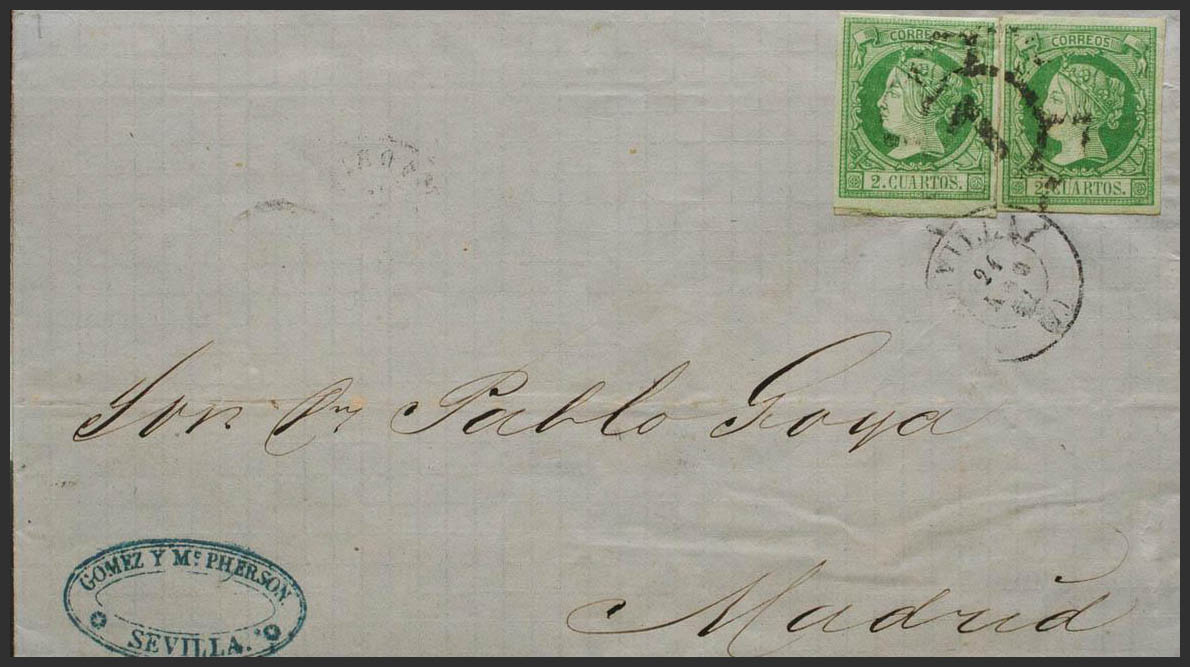 CORREOS
2. CUARTOS.
CORREOS
2. CUARTOS.
SEVILLA
24
AGO
Sor. Dn. Pablo Goya
Madrid
GOMEZ Y Mc. PHERSON
SEVILLA.